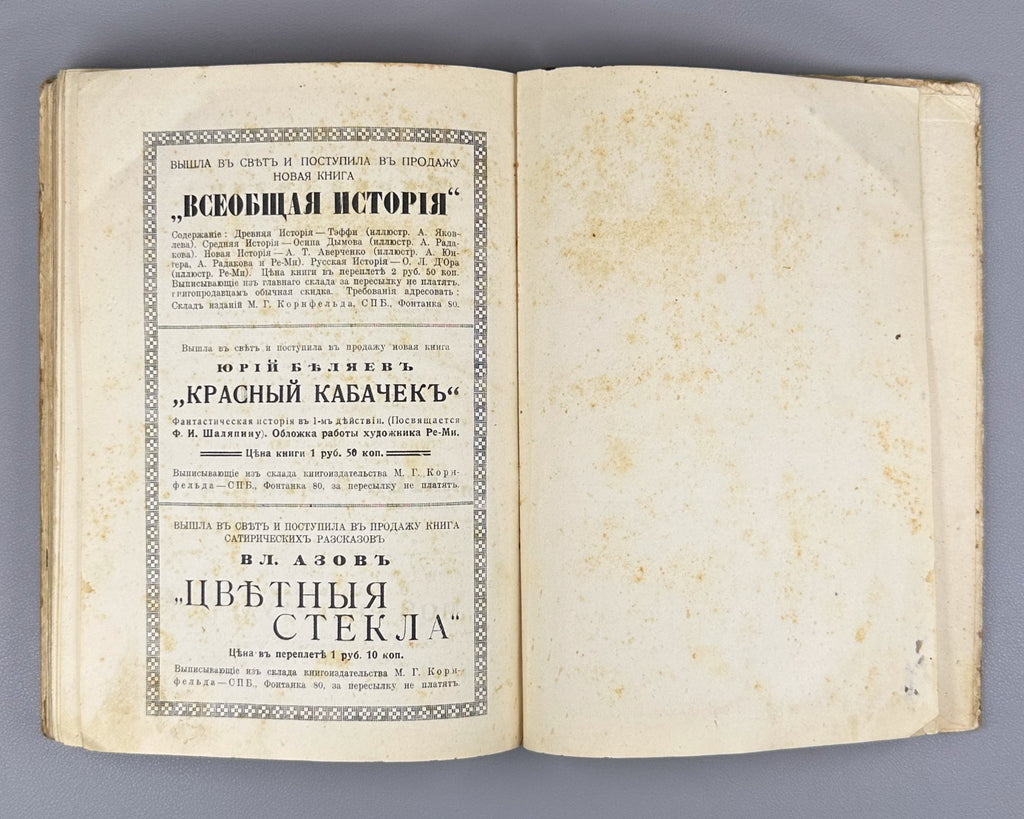 ВЫШЛА ВЪ СВѢТЪ И ПОСТУПИЛА ВЪ ПРОДАЖУ
НОВАЯ КНИГА
„ВСЕОБЩАЯ ИСТОРІЯ“
Содержаніе: Древняя Исторія — Тэффи (иллюстр. А. Яков-
лева). Средняя Исторія — Осипа Дымова (иллюстр. А. Рада-
кова). Новая Исторія — А. Т. Аверченко (иллюстр. А. Юн-
гера, А. Радакова и Ре-Ми). Русская Исторія — О. Л. Д'Ора
(иллюстр. Ре-Ми). Цѣна книги въ переплетѣ 2 руб. 50 коп.
Выписывающіе изъ главнаго склада за пересылку не платятъ.
Книгопродавцамъ обычная скидка. Требованія адресовать:
Складъ изданій М. Г. Корнфельда, СПБ., Фонтанка 80.
Вышла въ свѣтъ и поступила въ продажу новая книга
ЮРІЙ БѢЛЯЕВЪ
„КРАСНЫЙ КАБАЧЕКЪ“
Фантастическая исторія въ 1-мъ дѣйствіи. (Посвящается
Ф. И. Шаляпину). Обложка работы художника Ре-Ми.
Цѣна книги 1 руб. 50 коп.
Выписывающіе изъ склада книгоиздательства М. Г. Корн-
фельда — СПБ., Фонтанка 80, за пересылку не платятъ.
ВЫШЛА ВЪ СВѢТЪ И ПОСТУПИЛА ВЪ ПРОДАЖУ КНИГА
САТИРИЧЕСКИХЪ РАЗСКАЗОВЪ
ВЛ. АЗОВЪ
„ЦВѢТНЫЯ
СТЕКЛА“
Цѣна въ переплетѣ 1 руб. 10 коп.
Выписывающіе изъ склада книгоиздательства М. Г. Корн-
фельда — СПБ., Фонтанка 80, за пересылку не платятъ.